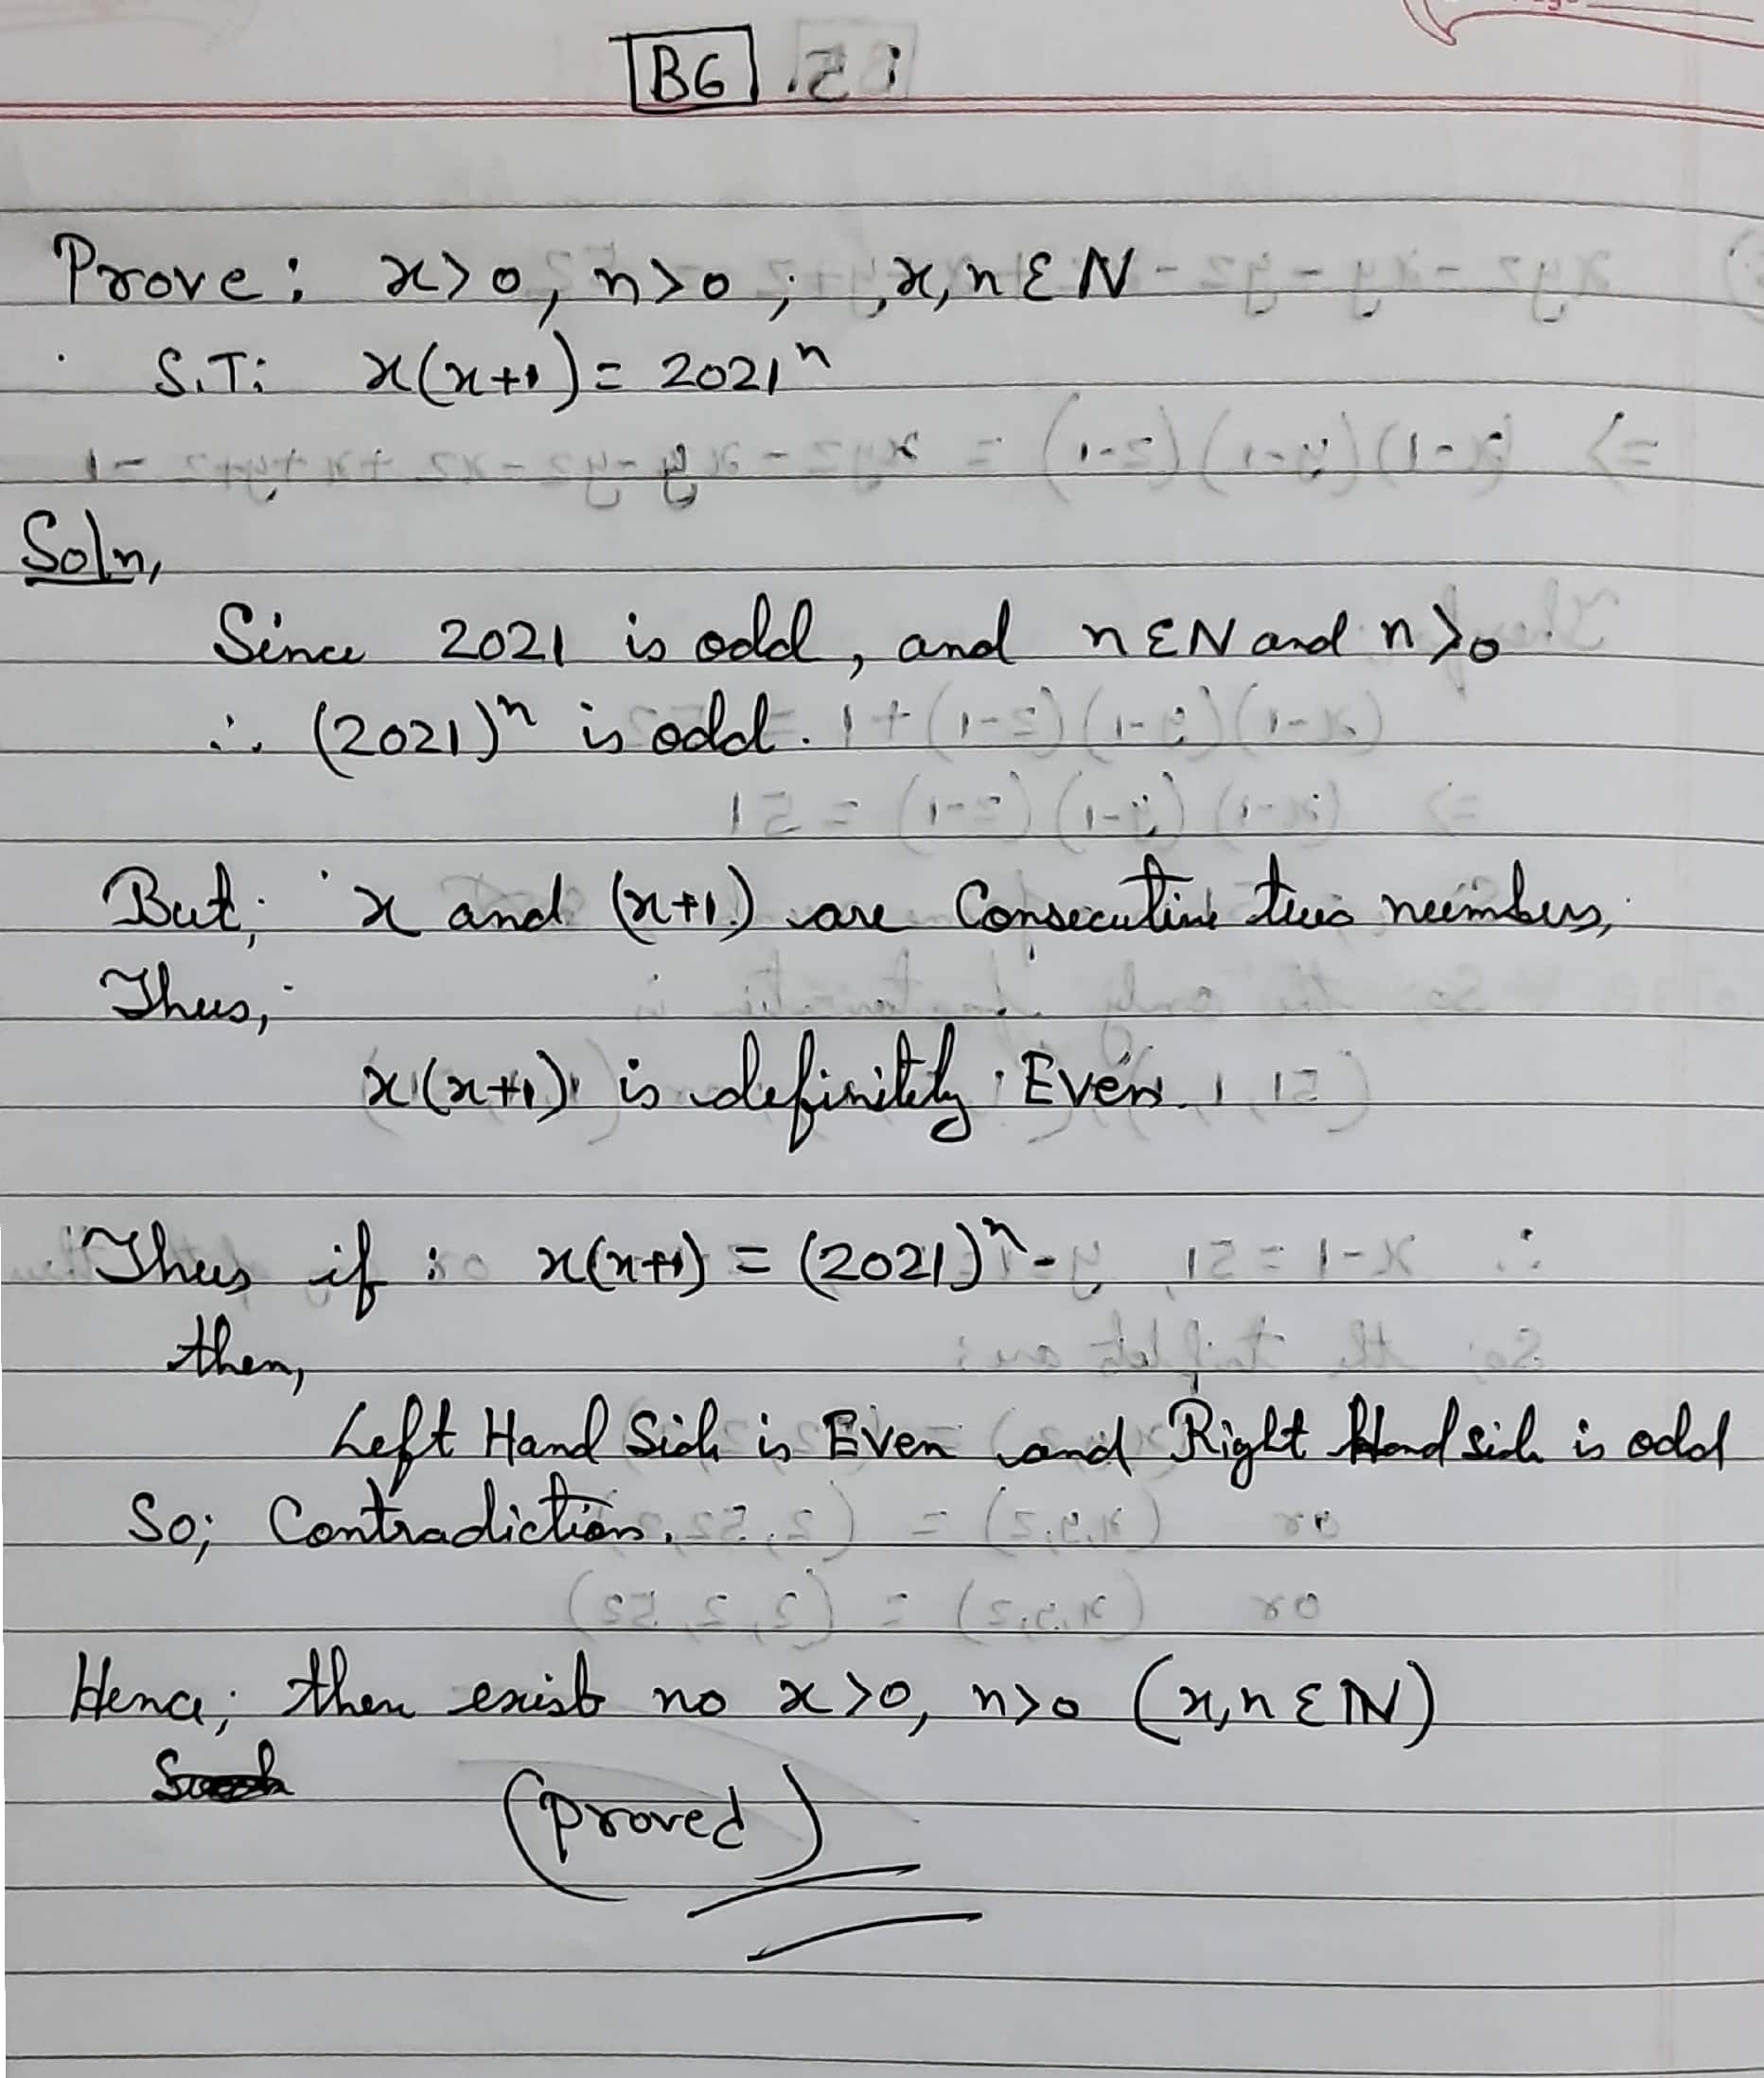 B6
Prove: x>0, n>0 ; x, n ε N
S.T: x(x+1) = 2021ⁿ
Soln,
Since 2021 is odd, and n ε N and n>0
∴ (2021)ⁿ is odd.
But; x and (x+1) are Consecutive two numbers,
Thus,
x(x+1) is definitely Even.
Thus if : x(x+1) = (2021)ⁿ
then,
Left Hand Side is Even and Right Hand side is odd
So; Contradiction.
Hence; then exist no x>0, n>0 (x,n ε N)
(proved)